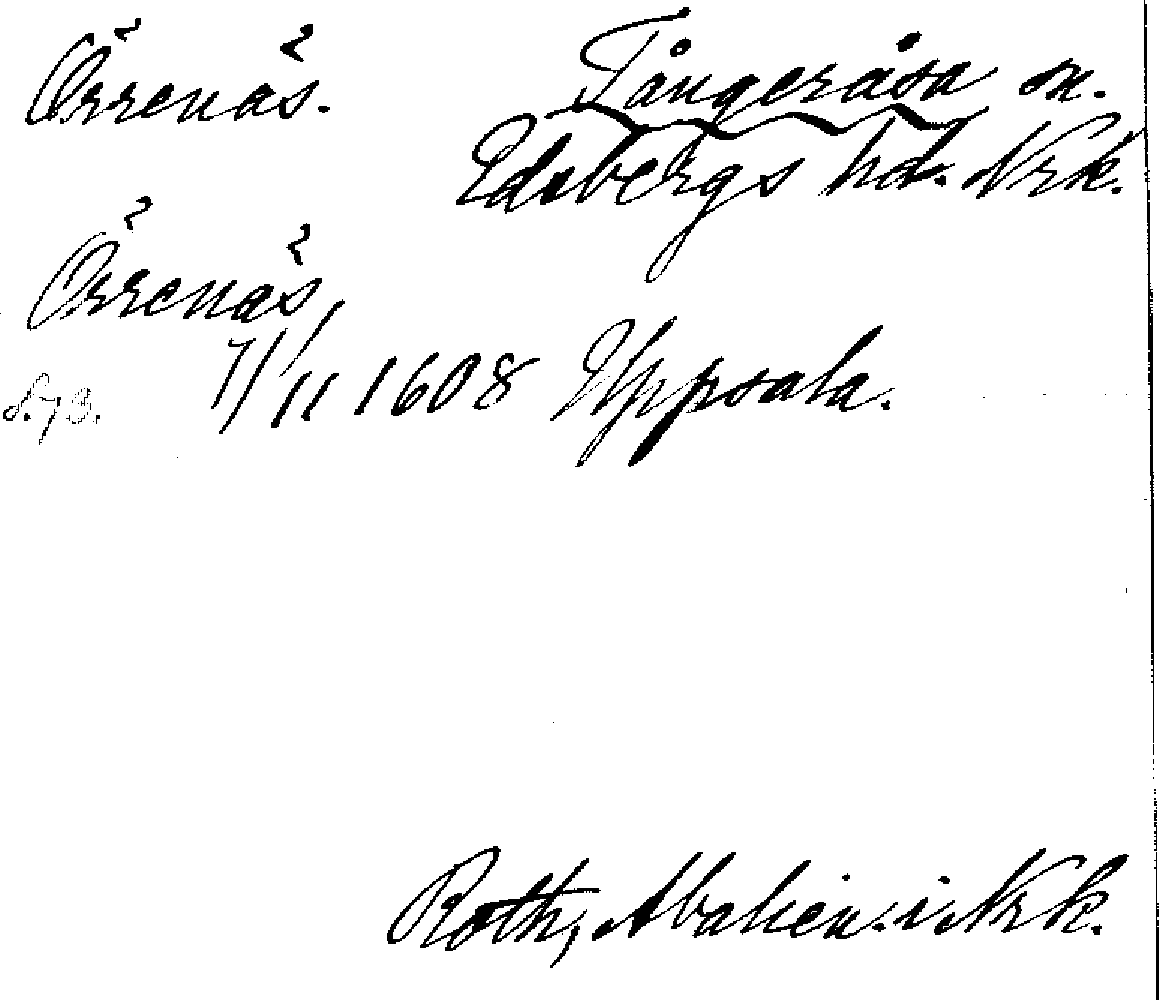 Örrenäs. Tångeråsa sn.
Edsbergs hd. Nrk.
Örrenäs,
7/11 1608 Uppsala.
S.73.
Roth, Abalien. i Nrk.